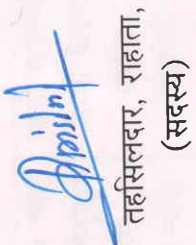 तहसिलदार, राहाता,
(सदस्य)